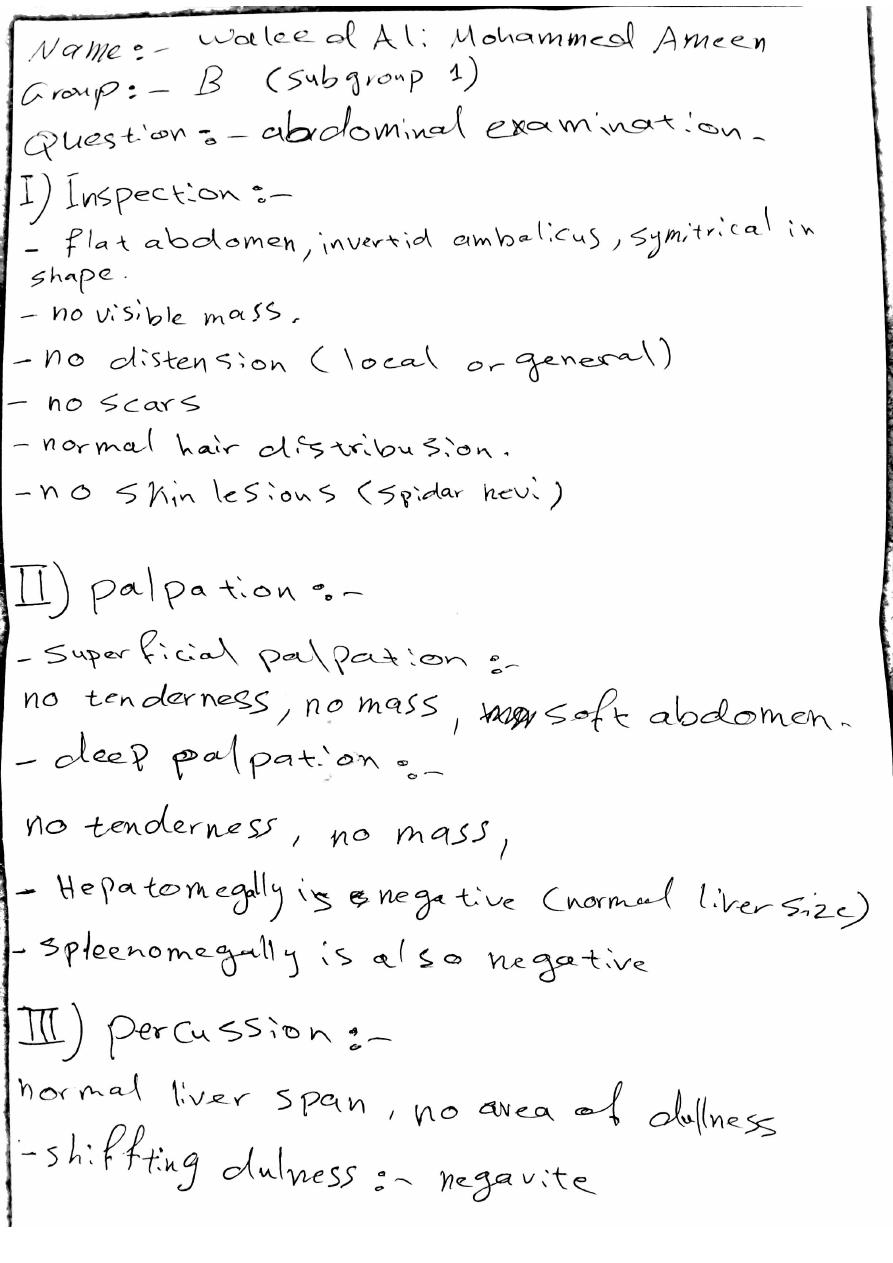 Name:- Waleed Ali Mohammed Ameen
Group:- B (subgroup 1)
Question:- abdominal examination-
I) Inspection:-
- flat abdomen, invertid ambelicus, symitrical in
shape.
- no visible mass.
- no distension (local or general)
- no scars
- normal hair distribusion.
- no skin lesions (spidar nevi)
II) palpation:-
- superficial palpation:-
no tenderness, no mass, soft abdomen.
- deep palpation:-
no tenderness, no mass,
- Hepatomegally is negative (normal liver size)
- spleenomegally is also negative
III) percussion:-
normal liver span, no area of dullness
- shiffting dulness:- negavite